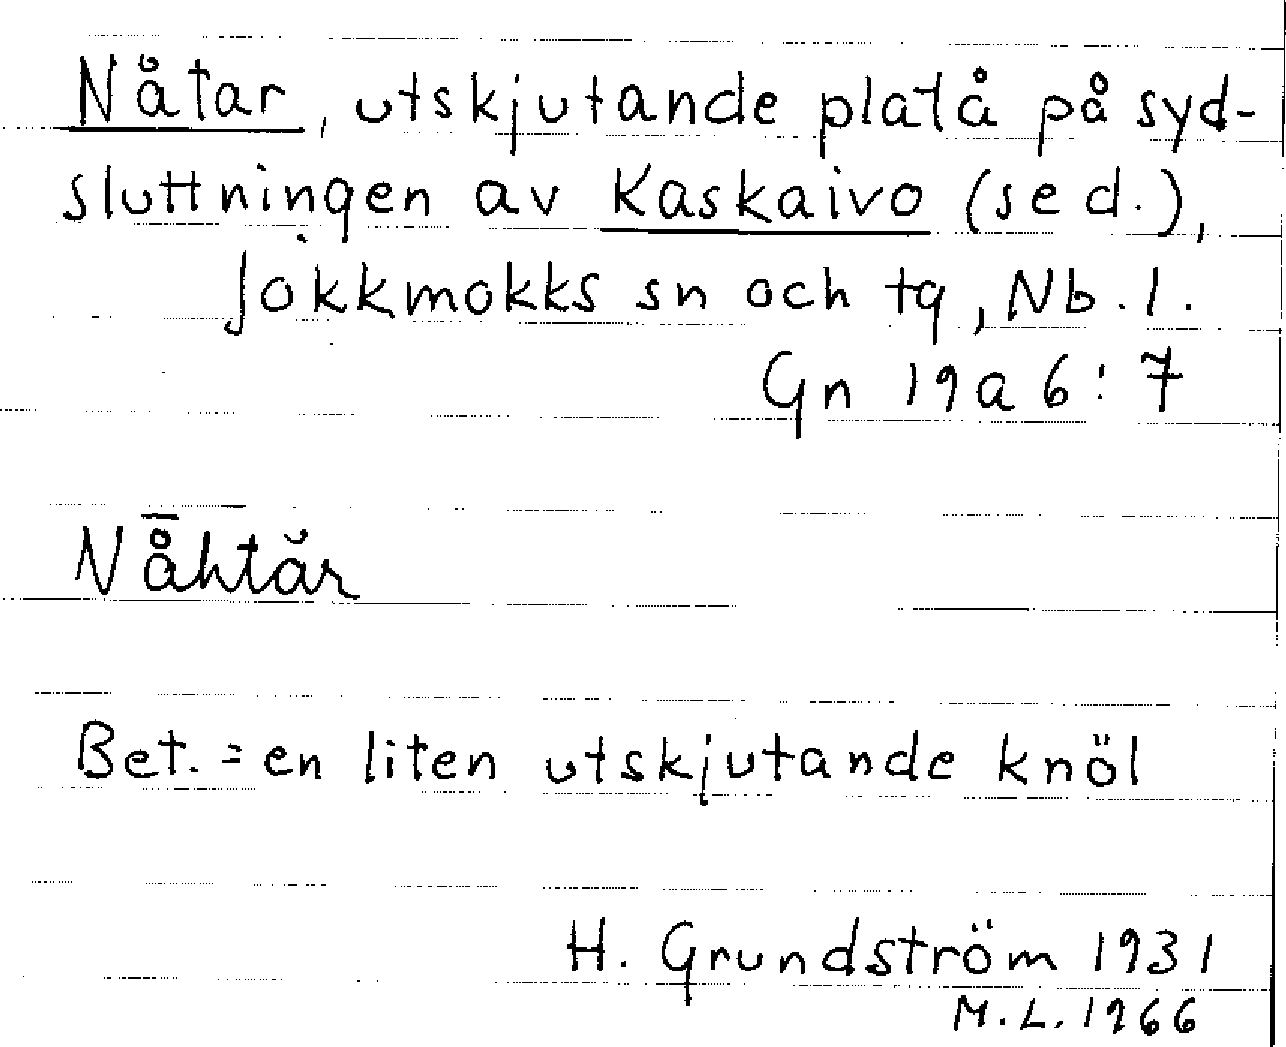 Nåtar, utskjutande platå på syd-
sluttningen av Kaskaivo (se d.),
Jokkmokks sn och tg, Nb. l.
Gn 19a 6:7
Nå̄htăr
Bet. = en liten utskjutande knöl
H. Grundström 1931
M.L. 1966